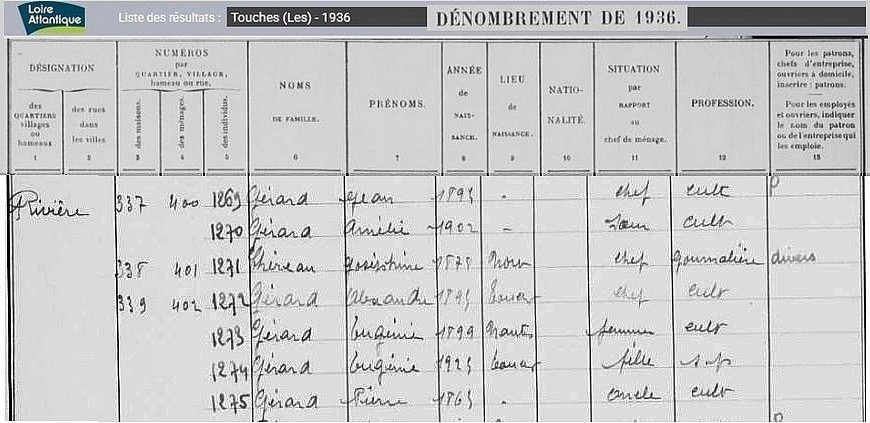 Loire Atlantique
Liste des résultats : Touches (Les) - 1936
DÉNOMBREMENT DE 1936.
DÉSIGNATION
des QUARTIERS villages ou hameaux
1
des rues dans les villes
2
NUMÉROS par QUARTIER, VILLAGE, hameau ou rue.
des maisons.
3
des ménages.
4
des individus.
5
NOMS DE FAMILLE.
6
PRÉNOMS.
7
ANNÉE de NAISSANCE.
8
LIEU de NAISSANCE.
9
NATIONALITÉ.
10
SITUATION par RAPPORT au chef de ménage.
11
PROFESSION.
12
Pour les patrons, chefs d'entreprise, ouvriers à domicile, inscrire : patrons.
Pour les employés et ouvriers, indiquer le nom du patron ou de l'entreprise qui les emploie.
13
Rivière 337 400 1269 Gérard Jean chef cult P
1270 Gérard Amélie 1902 - Sœur cult
338 401 1271 Joséphine chef divers
339 402 1272 Gérard Alexandre chef cult
1273 Gérard Eugénie 1899 Nantes femme cult
1274 Gérard Eugénie fille s.p
1275 Gérard Pierre oncle cult